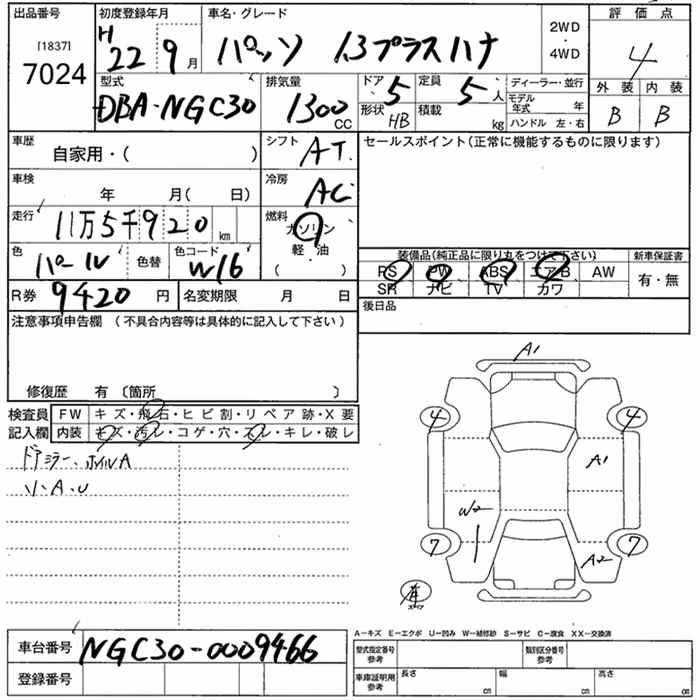 出品番号 初度登録年月 車名・グレード 2WD・4WD 評価点
[1837]
7024 H 22 9月 パッソ 1.3プラスハナ 4
型式 排気量 ドア 5 定員 5人 ディーラー・並行 外装 内装
DBA-NGC30 1300 CC 形状 HB 積載 kg モデル年式 年 B B
ハンドル 左・右
車歴 自家用・( ) シフト AT セールスポイント(正常に機能するものに限ります)
車検 年 月( 日) 冷房 AC
走行 11万5千920 km 燃料 ガソリン
軽・油
( )
色 パール 色替 色コード W16
装備品(純正品に限り丸をつけて下さい) 新車保証書
PS PW ABS エアB AW 有・無
SR ナビ TV カワ
R券 9420円 名変期限 月 日 後日品
注意事項申告欄 (不具合内容等は具体的に記入して下さい)
修復歴 有〔箇所 〕
検査員 FW キズ・飛石・ヒビ割・リペア跡・X要
記入欄 内装 キズ・汚レ・コゲ・穴・スレ・キレ・破レ
ドアミラー、ホイルA
小A.U
A1
4 4
A1
W2
7 7
A2
A-キズ E-エクボ U-凹み W-補修跡 S-サビ C-腐食 XX-交換済
車台番号 NGC30-0009466 型式指定番号 参考 類別区分番号 参考
登録番号 車庫証明用 参考 長さ cm 幅 cm 高さ cm